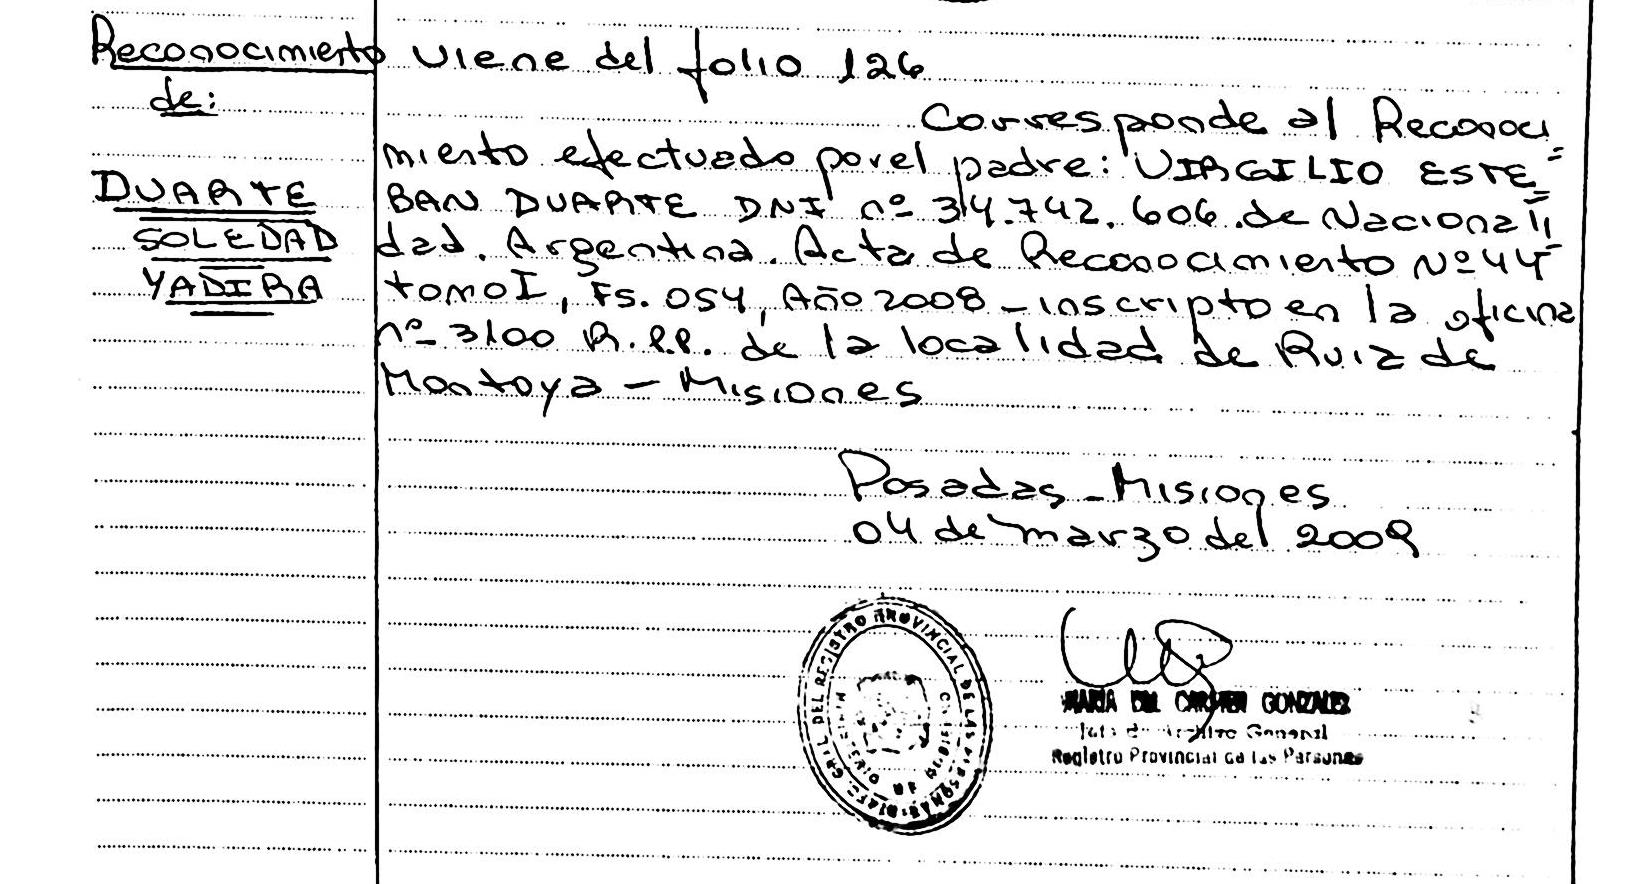 Reconocimiento
de:
DUARTE
SOLEDAD
YADIRA
Viene del folio 126
Corresponde al Reconoci
miento efectuado por el padre: VIRGILIO ESTE=
BAN DUARTE DNI nº 34.742.606 de Nacionali=
dad. Argentina. Acta de Reconocimiento Nº 44
tomo I, Fs. 054, Año 2008 - inscripto en la oficina
nº 3100 R.P.P. de la localidad de Ruiz de
Montoya - Misiones
Posadas - Misiones
04 de marzo del 2009
GRAL DEL REGISTRO PROVINCIAL DE LAS PERSONAS
MARIA DEL CARMEN GONZALEZ
Archivo General
Registro Provincial de las Personas